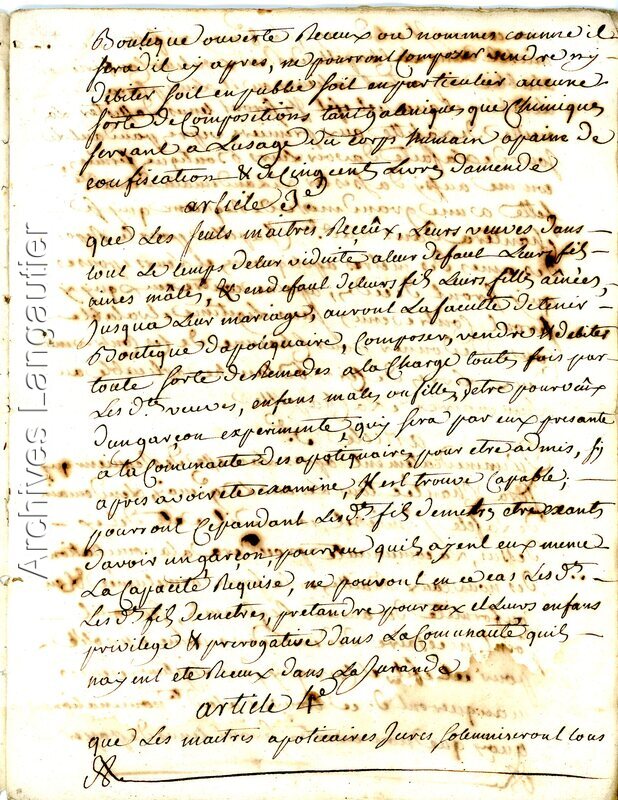 Boutique ouverte Receux ou nommes comme il
sera dil cy apres, ne pourront Composer vendre ny
debiter soit en public soit en particulier aucune
sorte de Compositions tant galeniques que Chimiques
servant a Lusage du Corps humain apaine de
confiscation & de Cinq cent Livres damende
article 3e
que Les seuls maitres Receüx, Leurs veuves dans
tout Le temps de leur viduité a leur defaut Leurs fils
aines mâles, & en defaut de leurs fils Leurs filles aînées,
Jusqua Leur mariage, auront La faculté de tenir
Boutique dapotiquaire, Composer, vendre & debiter
toute sorte de Remedes a la Charge toutes fois par
Les dts veuves, enfans males ou filles, detre pourvûs
dun garçon experimenté quy sera par eux presanté
a la Communauté des apotiquaires pour etre admis, sy
apres avoir eté examiné, il est trouvé Capable;
pourront Cepandant Les dts fils de metres etre exants
davoir un garçon, pourveu quils ayent eux meme
La Capacité Requise, ne pouvont en ce cas Les dts
Les dts fils de metres, pretandre pour eux et Leurs enfans
privilege & prerogatise dans La Comunauté quils
nayent eté Receux dans La Jurande
article 4e
que Les maitres apoticaires Jures solemniseront tous
Archives Langautier